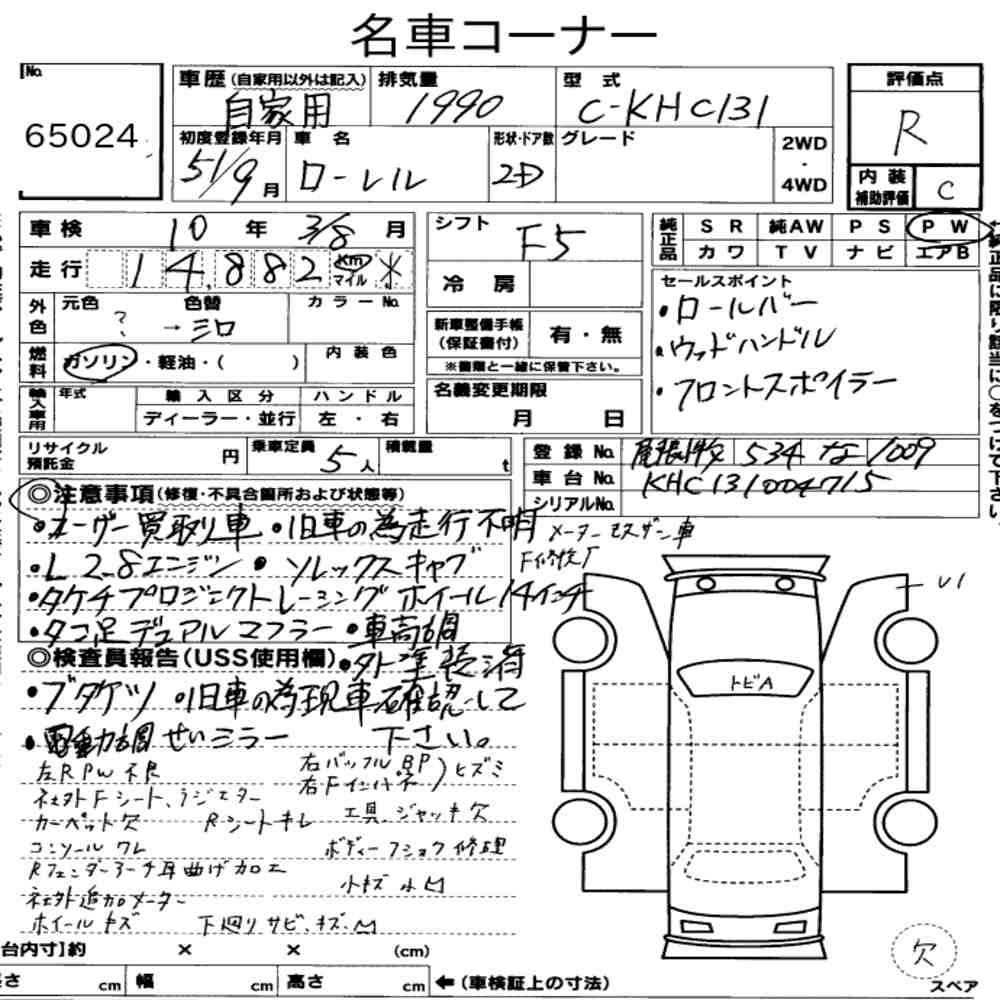 名車コーナー
No. 65024
車歴 (自家用以外は記入) 自家用
排気量 1990
型式 C-KHC131
評価点 R
内装補助評価 C
初度登録年月 51/9 月
車名 ローレル
形状・ドア数 2D
グレード
2WD・4WD
車検 10 年 3/8 月
走行 14,882 Km マイル *
シフト F5
冷房
純正品 SR 純AW PS PW
カワ TV ナビ エアB
外色 元色 ? 色替 → シロ カラーNo.
燃料 ガソリン・軽油・( ) 内装色
新車整備手帳(保証書付) 有・無
※書類と一緒に保管下さい。
セールスポイント
・ロールバー
・ウッドハンドル
・フロントスポイラー
輸入車用 年式 輸入区分 ハンドル
ディーラー・並行 左・右
名義変更期限 月 日
リサイクル預託金 円
乗車定員 5人
積載量 t
登録No. 尾張小牧 534 な 1009
車台No. KHC131004715
シリアルNo.
◎注意事項(修復・不具合箇所および状態等)
・ユーザー買取り車 ・旧車の為走行不明 メーター
・L2.8エンジン ・ソレックスキャブ F修検有
・タケチプロジェクトレーシングホイール14インチ
・タコ足デュアルマフラー ・車高調
◎検査員報告(USS使用欄) ・外全塗装済
・ブタケツ ・旧車の為現車確認して
・電動調せいミラー 下さい。
左RPW不良 右バッフルBP
社外Fシート、ラジエター 右Fインパネ ヒズミ
カーペット欠 Rシートキレ 工具、ジャッキ欠
コンソールワレ ボディーフショク修理
Rフェンダーアーチ耳曲げ加工
社外追加メーター 小キズ小凹
ホイールキズ 下廻りサビ、キズ、凹
U1
トビA
欠
スペア
台内寸】約 × × (cm)
長さ cm 幅 cm 高さ cm ←(車検証上の寸法)